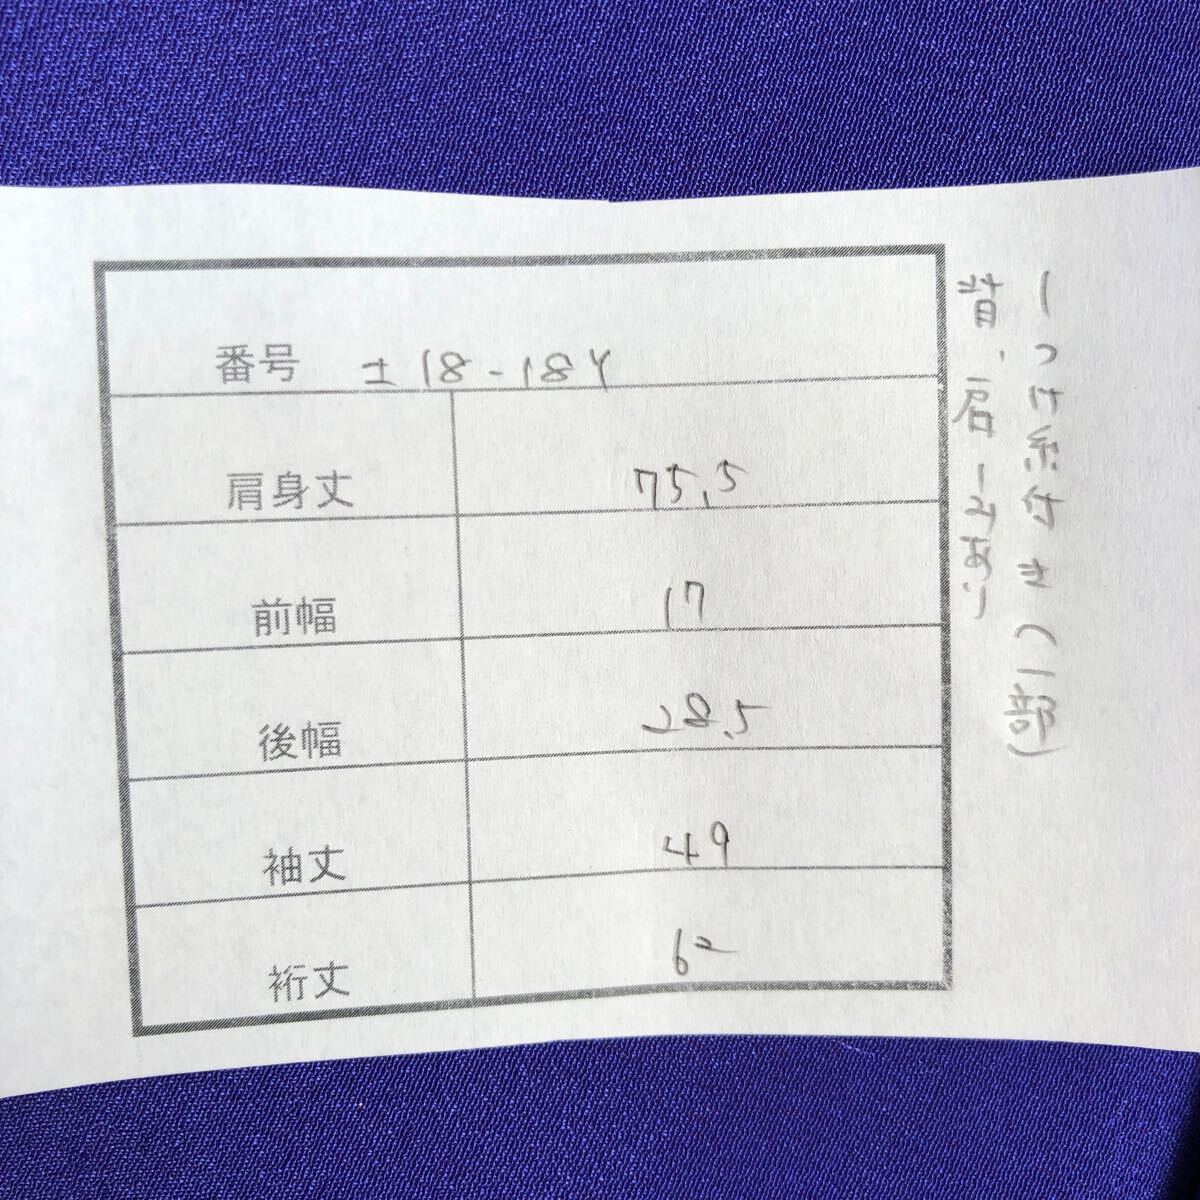 番号 ± 18-184
肩身丈 75.5
前幅 17
後幅 28.5
袖丈 49
裄丈 62
しつけ糸付き(1部)
背・肩